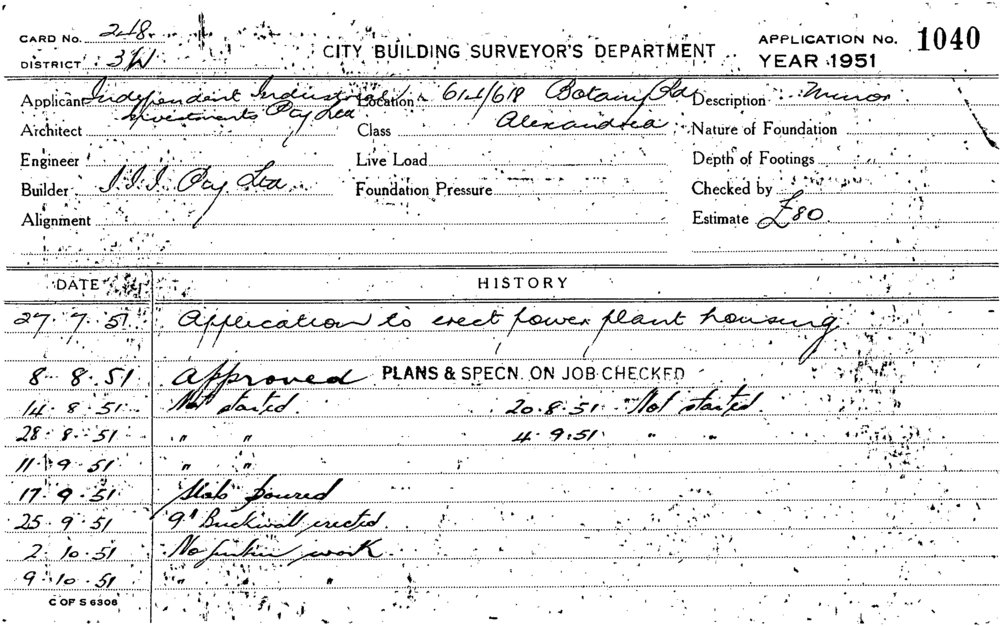 CARD No. 248
DISTRICT 3W
CITY BUILDING SURVEYOR'S DEPARTMENT
APPLICATION No. 1040
YEAR 1951
Applicant Independent Industrial
Investments Pty Ltd
Location 614/618 Botany Rd
Alexandria
Description Minor
Architect
Class
Nature of Foundation
Engineer
Live Load
Depth of Footings
Builder I.I.I. Pty Ltd
Foundation Pressure
Checked by
Alignment
Estimate £80
DATE HISTORY
27.7.51 Application to erect power plant housing
8.8.51 Approved PLANS & SPECN. ON JOB CHECKED
14.8.51 Not started. 20.8.51 Not started.
28.8.51 " " 4.9.51 " "
11.9.51 " "
17.9.51 Slab poured
25.9.51 9" Brickwall erected.
2.10.51 No further work
9.10.51 " " "
C OF S 6308